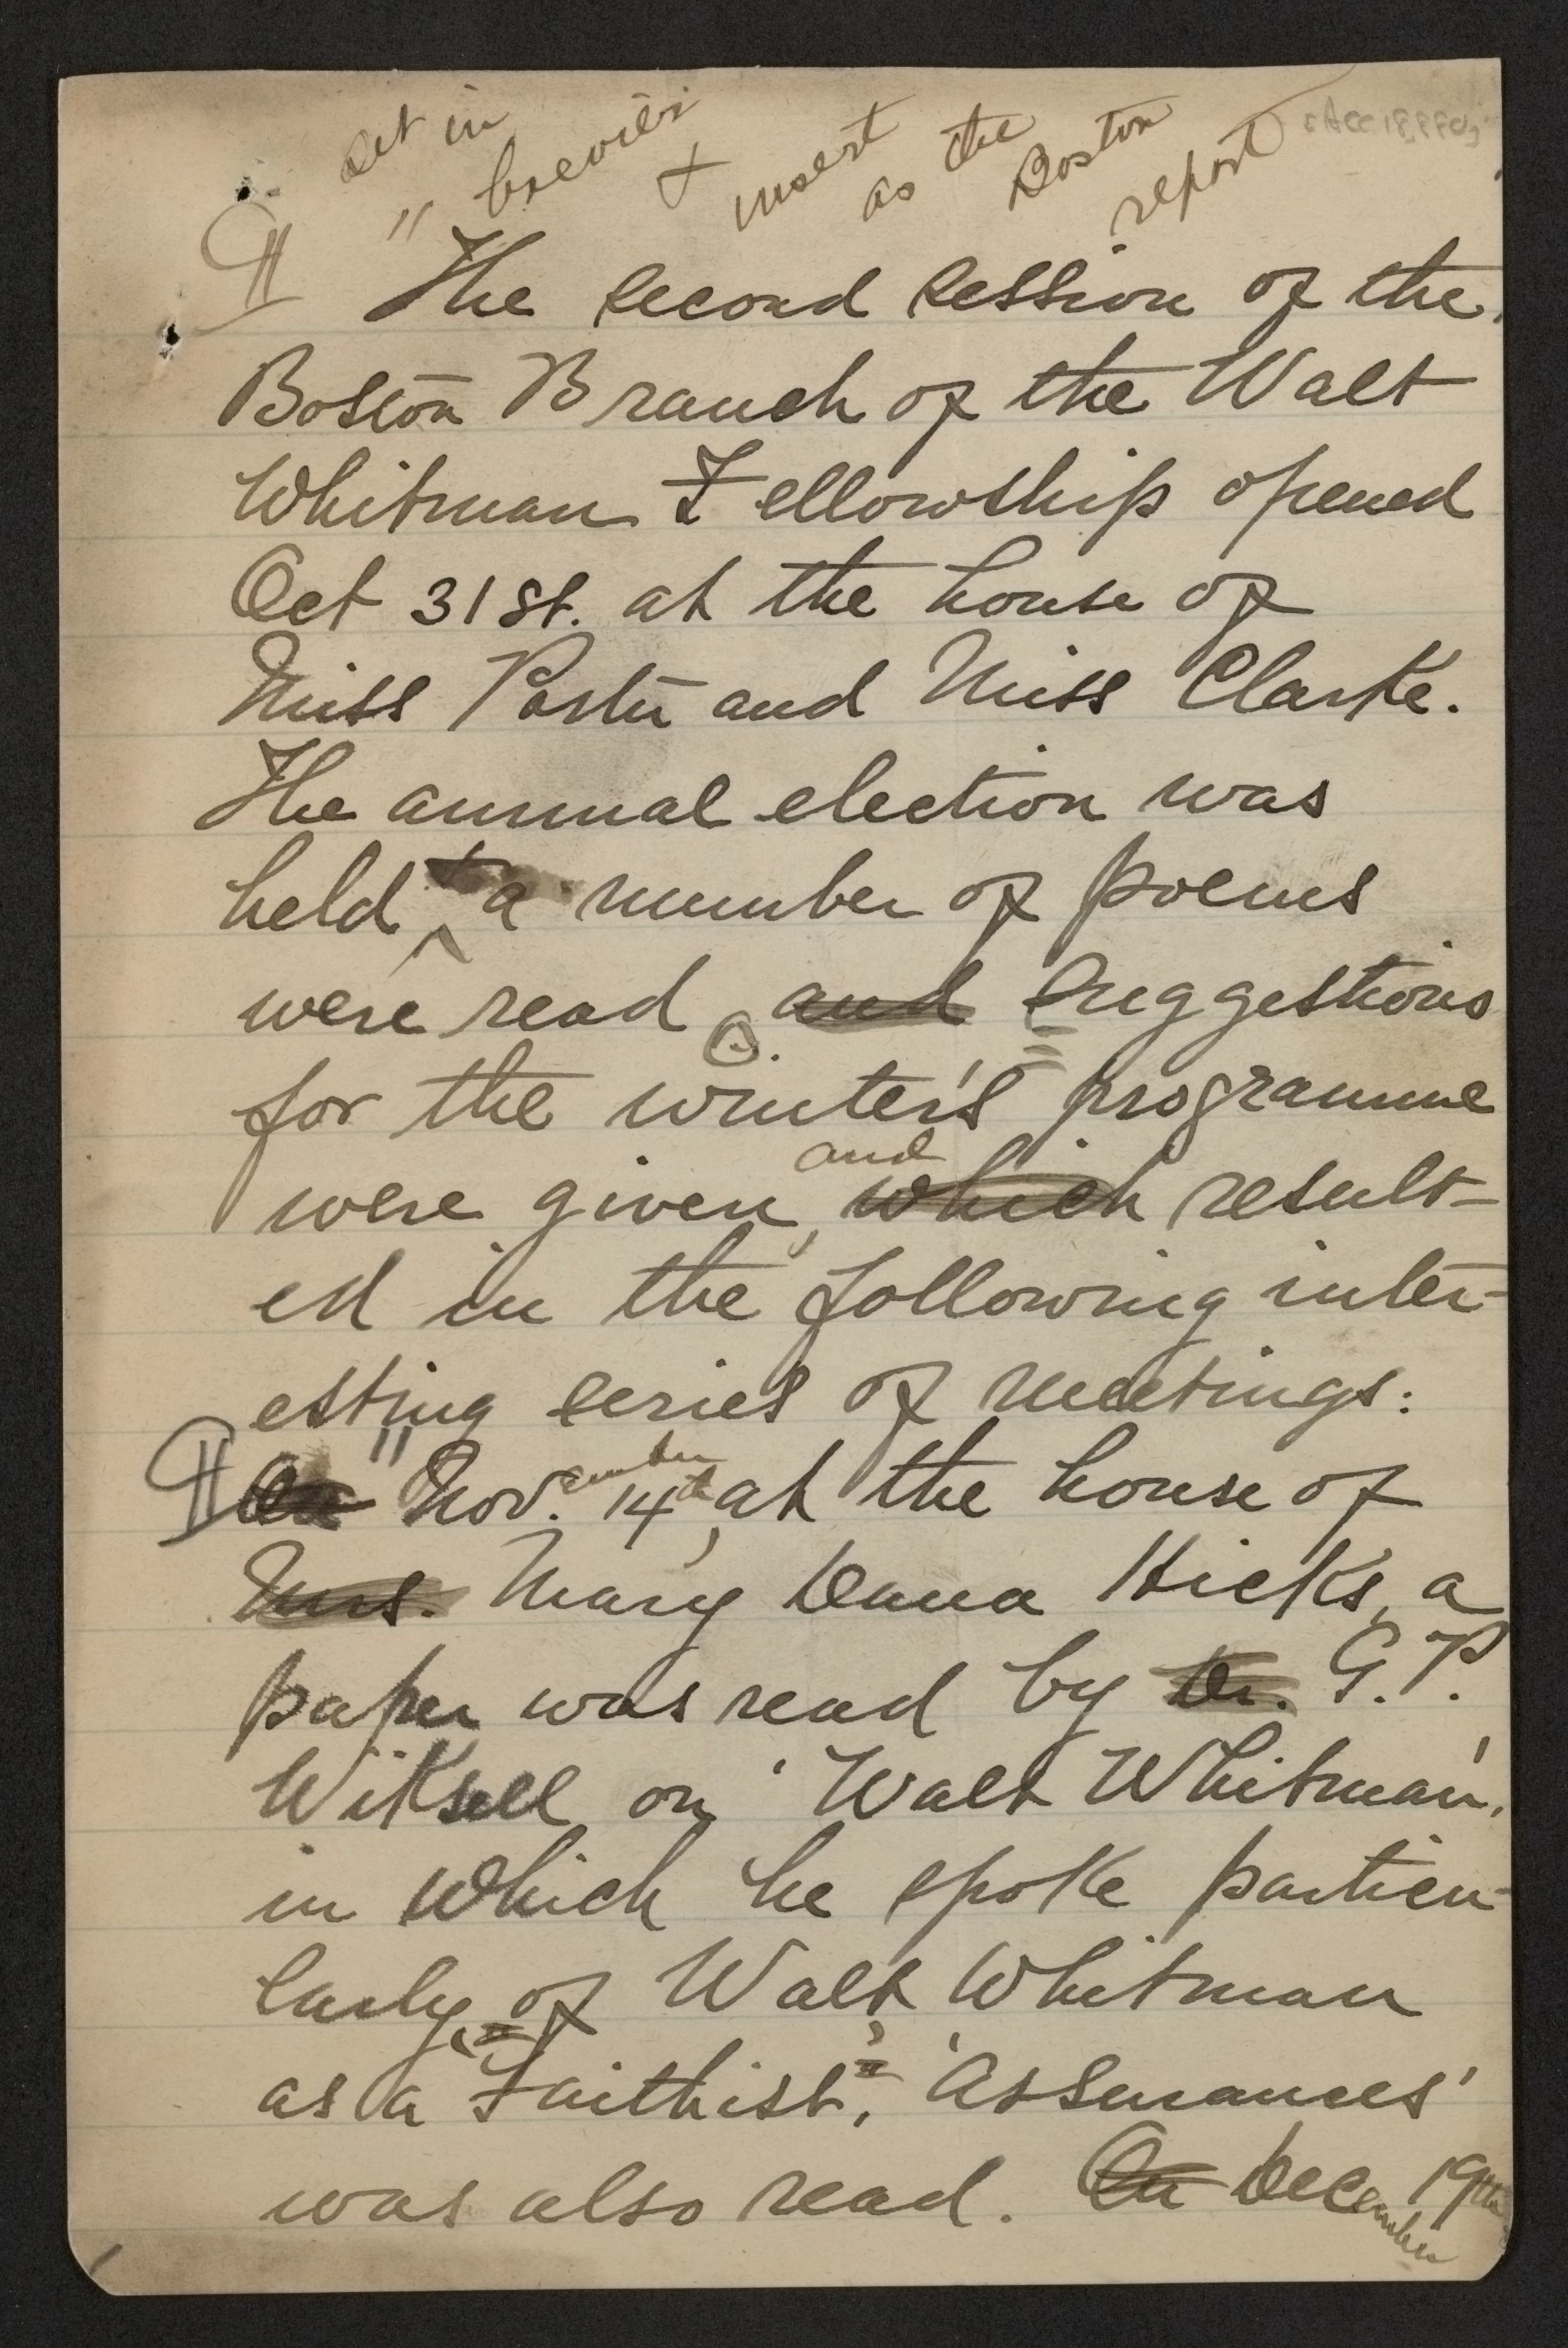 set in
" brevier
& insert
as the
Boston
report
¶ The second session of the
Boston Branch of the Walt
Whitman Fellowship opened
Oct 31st. at the house of
Miss Porter and Miss Clarke.
The annual election was
held ^ & a number of poems
were read . and Suggestions
for the winter's programme
and
were given, which result-
ed in the following inter-
esting series of meetings:
¶ On " Nov.ember 14th, at the house of
Mrs. Mary Dana Hicks, a
paper was read by Dr. G. P.
Wiksell on 'Walt Whitman',
in which he spoke particu-
larly, of Walt Whitman
as a Faithist, 'Assurances'
was also read. On December 19th